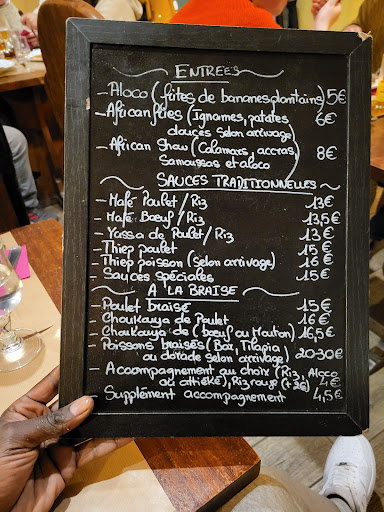 ENTREES
- Aloco (frites de bananes plantains) 5€
- African fries (Ignames, patates 6€
douces selon arrivage)
- African Show (Calamars, accras, 8€
Samoussas et aloco)
SAUCES TRADITIONNELLES
- Mafé Poulet / Riz 13€
- Mafé Bœuf / Riz 13,5€
- Yassa de Poulet / Riz 13€
- Thiep poulet 15€
- Thiep poisson (selon arrivage) 16€
- Sauces spéciales 15€
A LA BRAISE
- Poulet braisé 15€
- Choukouya de Poulet 16€
- Choukouya de (bœuf ou Mouton) 16,5€
- Poissons braisés (Bar, Tilapia,
ou dorade selon arrivage) 20-30€
- Accompagnement au choix (Riz, Aloco
ou attiéké), Riz rouge (+2€) 4€
- Supplément accompagnement 4,5€